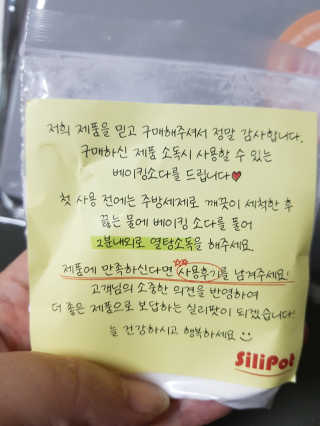 저희 제품을 믿고 구매해주셔서 정말 감사합니다.
구매하신 제품 소독시 사용할 수 있는
베이킹소다를 드립니다♥
첫 사용 전에는 주방세제로 깨끗이 세척한 후
끓는 물에 베이킹 소다를 풀어
2분내외로 열탕소독을 해주세요.
제품에 만족하신다면 사용후기를 남겨주세요!
고객님의 소중한 의견을 반영하여
더 좋은 제품으로 보답하는 실리팟이 되겠습니다!
늘 건강하시고 행복하세요 :)
SiliPot